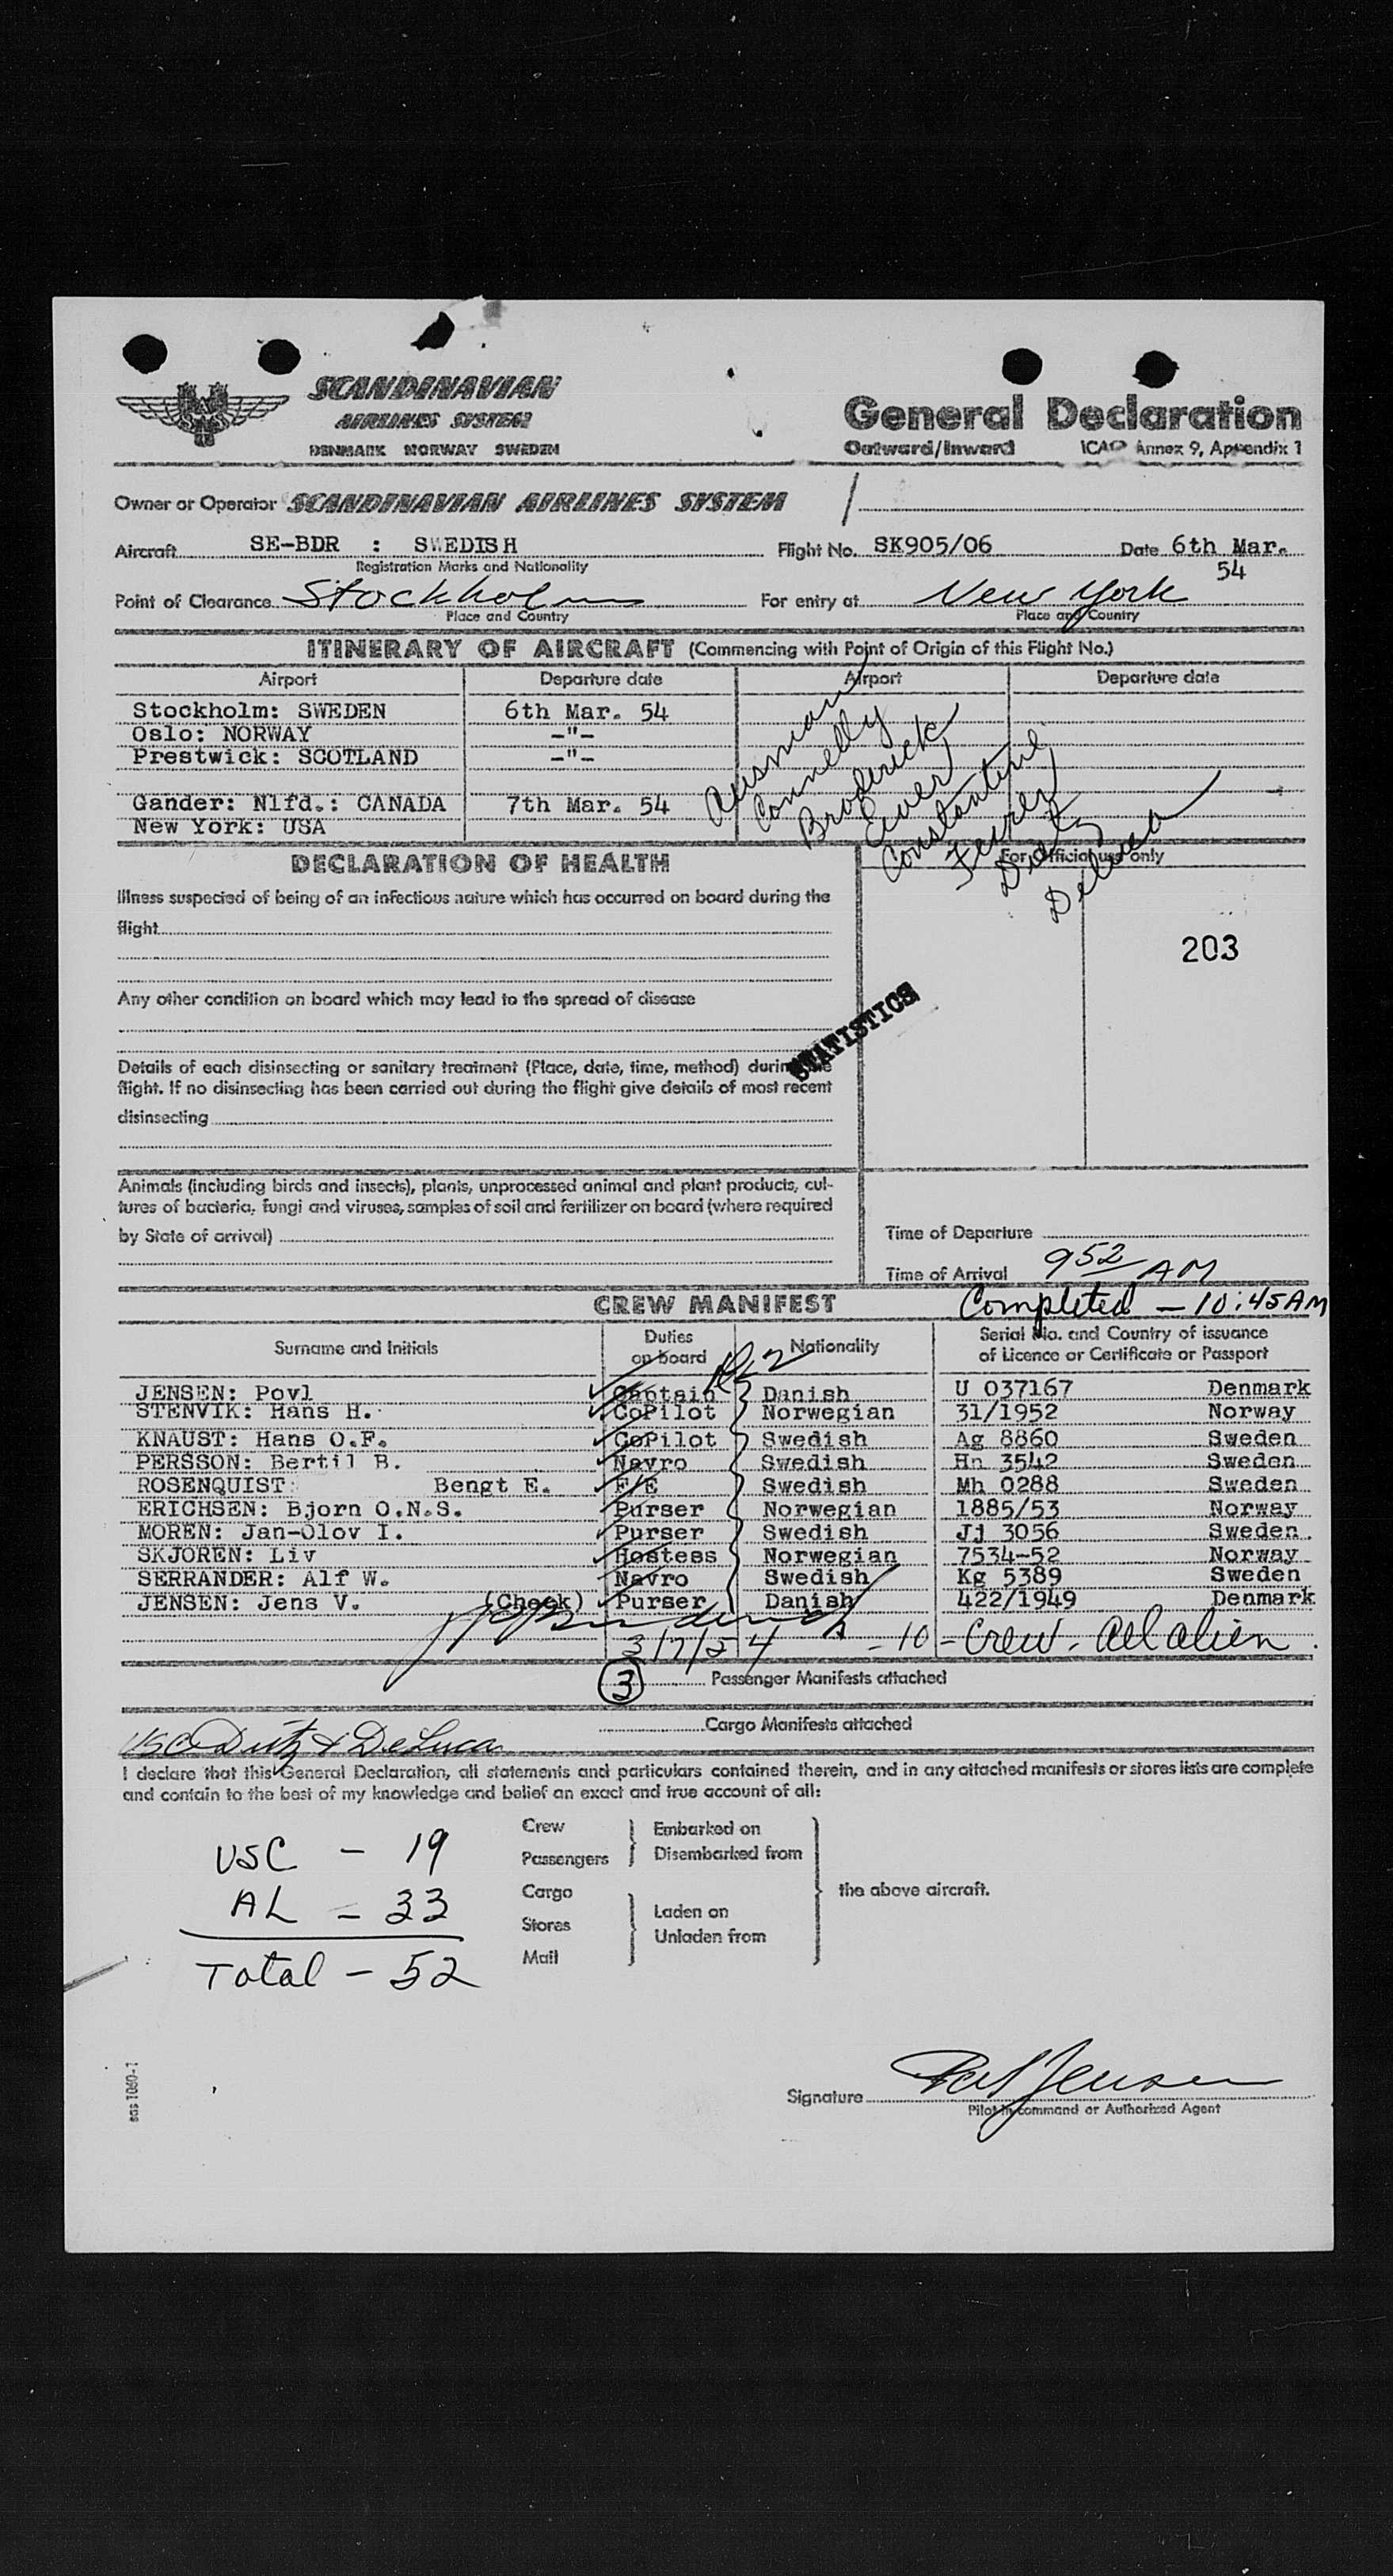 SCANDINAVIAN
AIRLINES SYSTEM
DENMARK NORWAY SWEDEN
General Declaration
Outward/Inward ICAO Annex 9, Appendix 1
Owner or Operator SCANDINAVIAN AIRLINES SYSTEM
Aircraft SE-BDR : SWEDISH Flight No. SK905/06 Date 6th Mar.
Registration Marks and Nationality 54
Point of Clearance Stockholm For entry at New York
Place and Country Place and Country
ITINERARY OF AIRCRAFT (Commencing with Point of Origin of this Flight No.)
Airport Departure date Airport Departure date
Stockholm: SWEDEN 6th Mar. 54
Oslo: NORWAY -"-
Prestwick: SCOTLAND -"-
Gander: Nlfd.: CANADA 7th Mar. 54
New York: USA
Connelly
Broderick
Constantine
Deluca
DECLARATION OF HEALTH
For official use only
Illness suspected of being of an infectious nature which has occurred on board during the
flight
203
Any other condition on board which may lead to the spread of disease
STATISTICS
Details of each disinsecting or sanitary treatment (Place, date, time, method) during the
flight. If no disinsecting has been carried out during the flight give details of most recent
disinsecting
Animals (including birds and insects), plants, unprocessed animal and plant products, cul-
tures of bacteria, fungi and viruses, samples of soil and fertilizer on board (where required
by State of arrival)
Time of Departure
Time of Arrival 952 AM
CREW MANIFEST Completed - 10:45AM
Surname and Initials Duties on board Nationality Serial No. and Country of issuance of Licence or Certificate or Passport
JENSEN: Povl Captain Danish U 037167 Denmark
STENVIK: Hans H. CoPilot Norwegian 31/1952 Norway
KNAUST: Hans O.F. CoPilot Swedish Ag 8860 Sweden
PERSSON: Bertil B. Navro Swedish Hn 3542 Sweden
ROSENQUIST: Bengt E. F/E Swedish Mh 0288 Sweden
ERICHSEN: Bjorn O.N.S. Purser Norwegian 1885/53 Norway
MOREN: Jan-Olov I. Purser Swedish Jj 3056 Sweden
SKJOREN: Liv Hostess Norwegian 7534-52 Norway
SERRANDER: Alf W. Navro Swedish Kg 5389 Sweden
JENSEN: Jens V. (Check) Purser Danish 422/1949 Denmark
3/7/54 - 10 - Crew. All alien
3 Passenger Manifests attached
Cargo Manifests attached
& DeLuca
I declare that this General Declaration, all statements and particulars contained therein, and in any attached manifests or stores lists are complete
and contain to the best of my knowledge and belief an exact and true account of all:
Crew Embarked on
Passengers Disembarked from
Cargo the above aircraft.
Stores Laden on
Mail Unladen from
USC - 19
AL - 33
Total - 52
sas 1060-1
Signature
Pilot in command or Authorized Agent